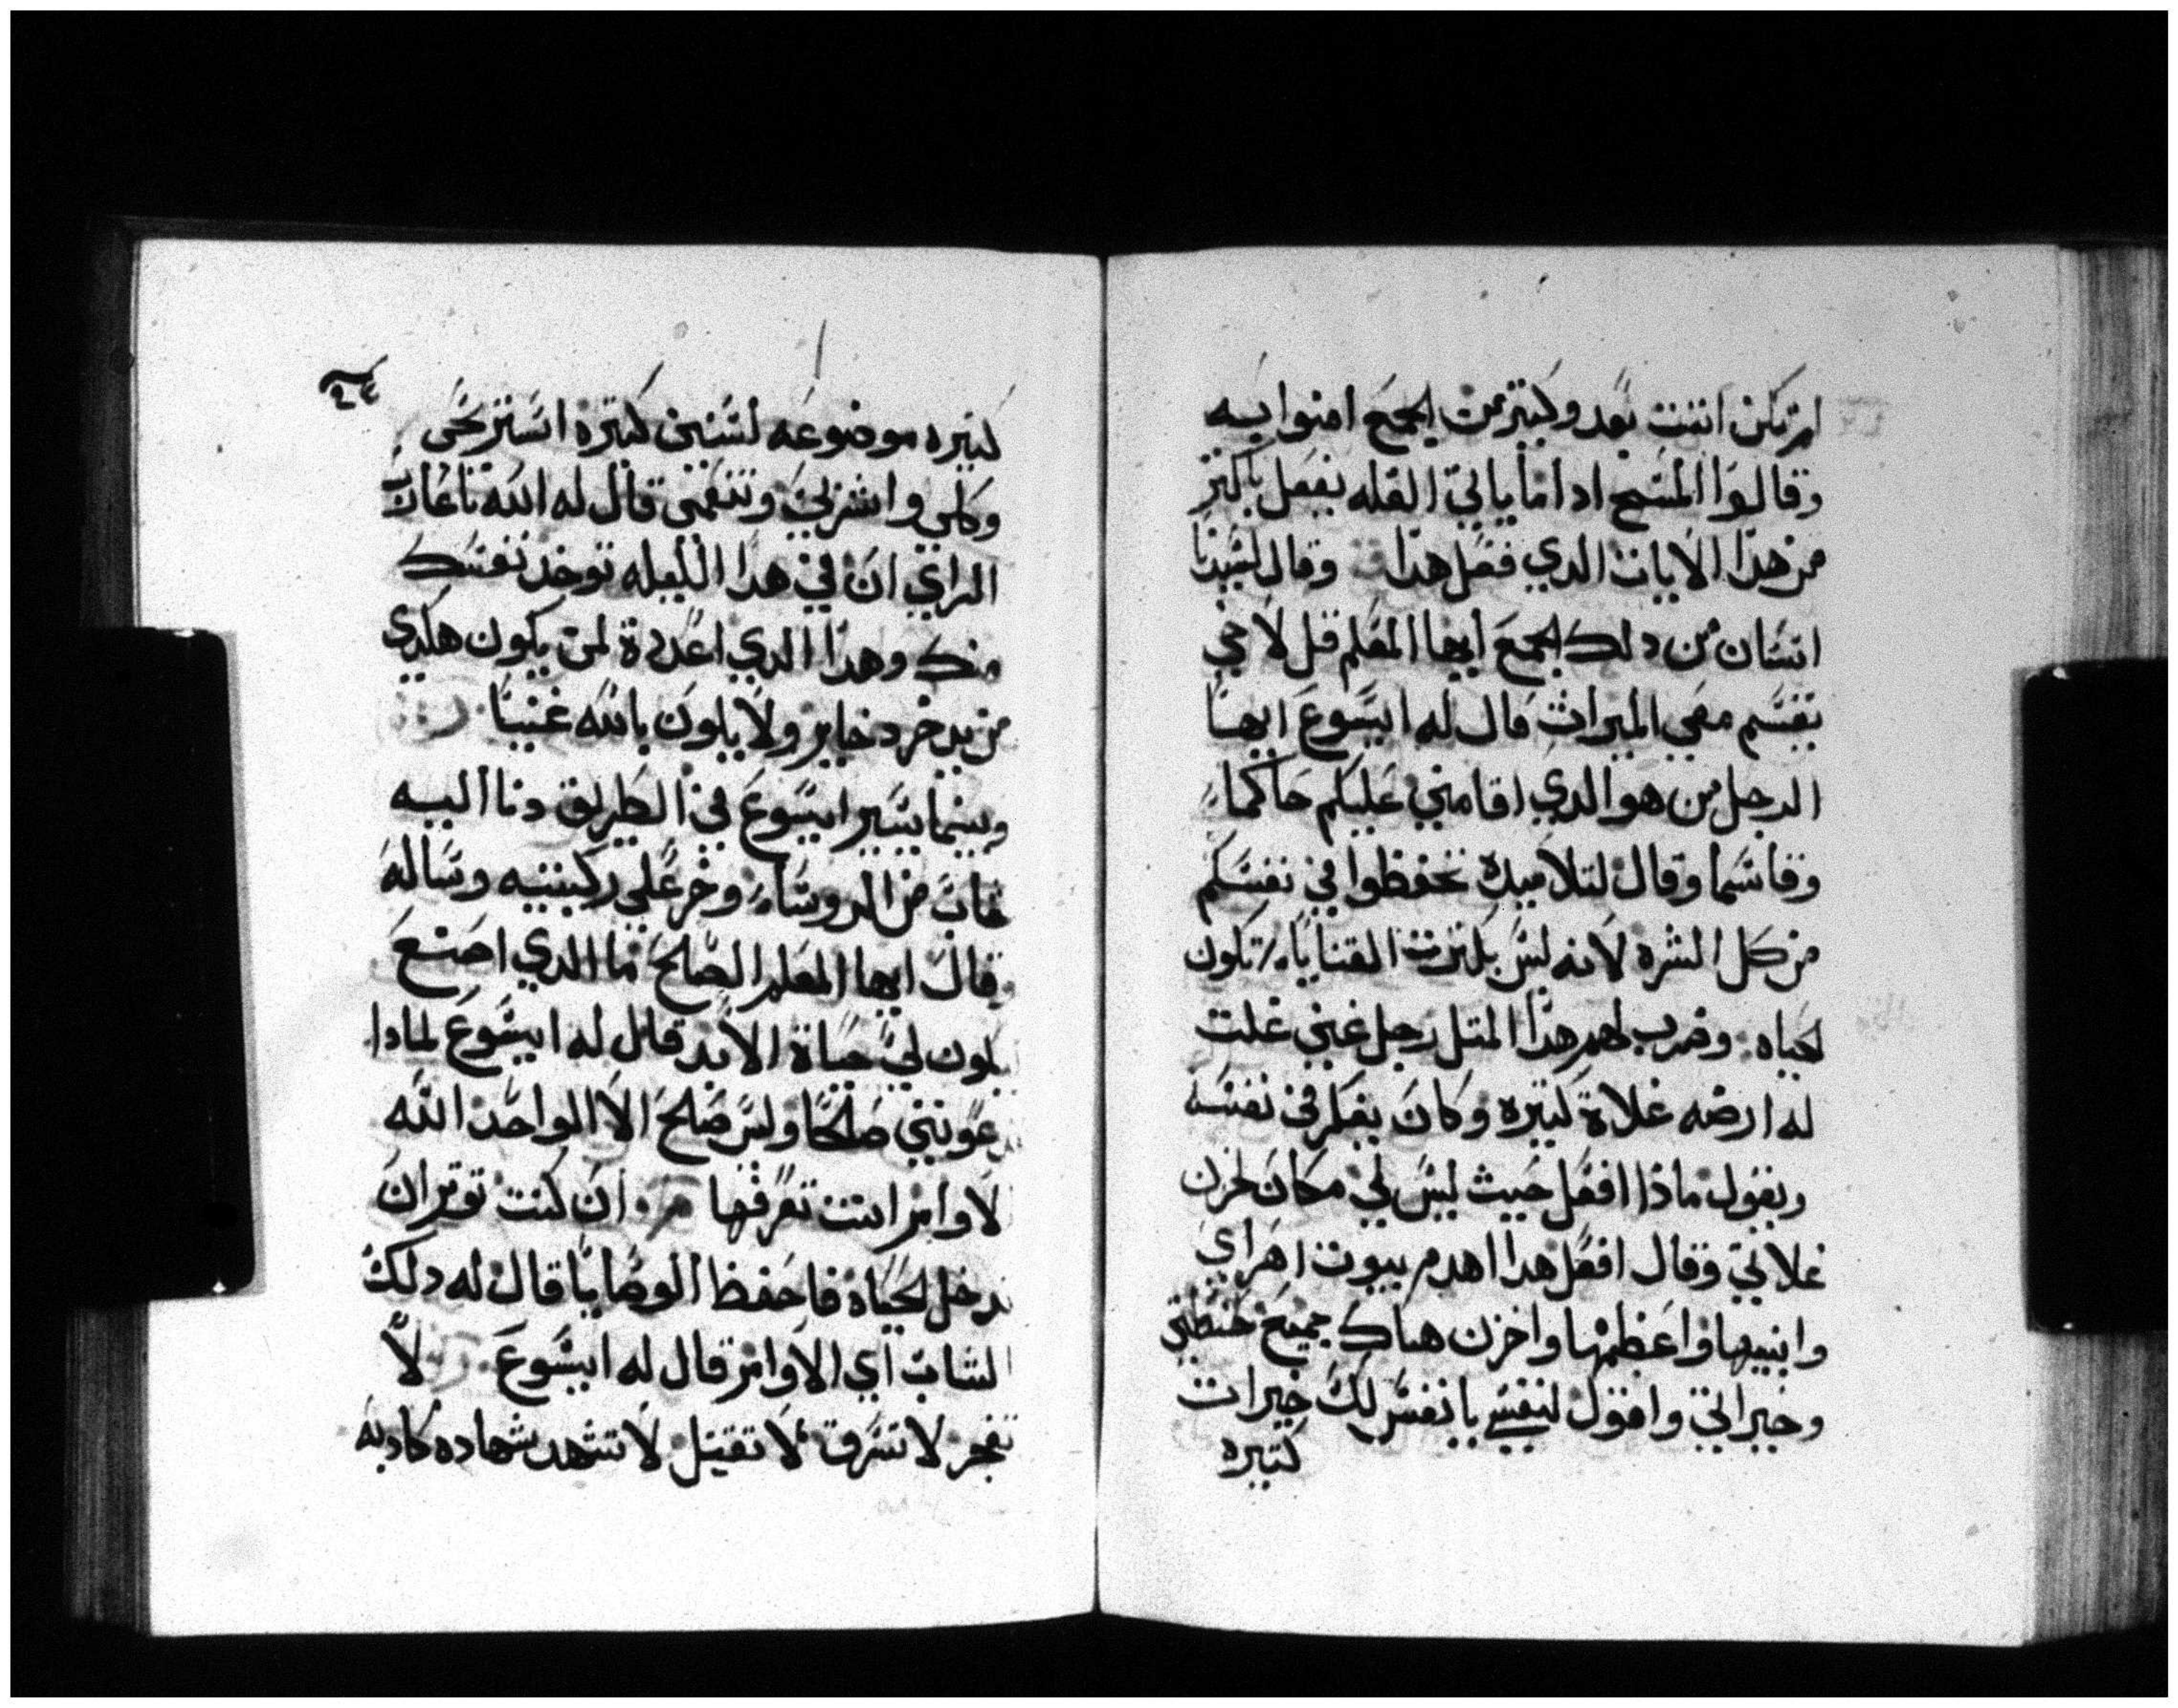 لم تكن اتتت بعد وكتير من الجمع امنوا به
وقالوا المسيح ادا ما ياتي العله يفعل باكتر
من هدا الايات الدي فعل هدا وقال لسيدنا
انسان من دلك الجمع ايها المعلم قل لاخي
يقسم معي الميراث قال له ايسوع ايها
الرجل من هو الدي اقامني عليكم حاكما
وقاسما وقال لتلاميده تحفظوا في نفسكم
من كل الشره لانه ليس بكترت القنايا تكون
الحياه وضرب لهم هدا المتل رجل غني غلت
له ارضه غلاة كتيره وكان يفكر في نفسه
ويقول ماذا افعل حيث ليس لي مكان لخزن
غلاتي وقال افعل هدا اهدم بيوت اهراي
وابنيها واعظمها واخزن هناك جميع حنطتي
وخيراتي واقول لنفسي يا نفس لك خيرات
كتيره
٢٤
كتيره موضوعه لسنين كتيره استريحي
وكلي واشربي وتنعمي قال له الله يا عادب
الراي ان في هدا الليله توخد نفسك
منك وهدا الدي اعددة لمن يكون هكدي
من يدخر دخاير ولا يكون بالله غنيا
وبينما يسير ايسوع في الطريق دنا اليه
شاب من الروساء وخر علي ركبتيه وساله
قال ايها المعلم الصالح ما الدي اصنع
يكون لي حياة الابد قال له ايسوع لمادا
دعوتني صالحا وليس صالح الا الواحد الله
الاوامر انت تعرفها ان كنت توتر ان
تدخل الحياه فاحفظ الوصايا قال له دلك
الشاب اي الاوامر قال له ايسوع لا
تفجر لا تسرق لا تقتل لا تشهد شهاده كادبه